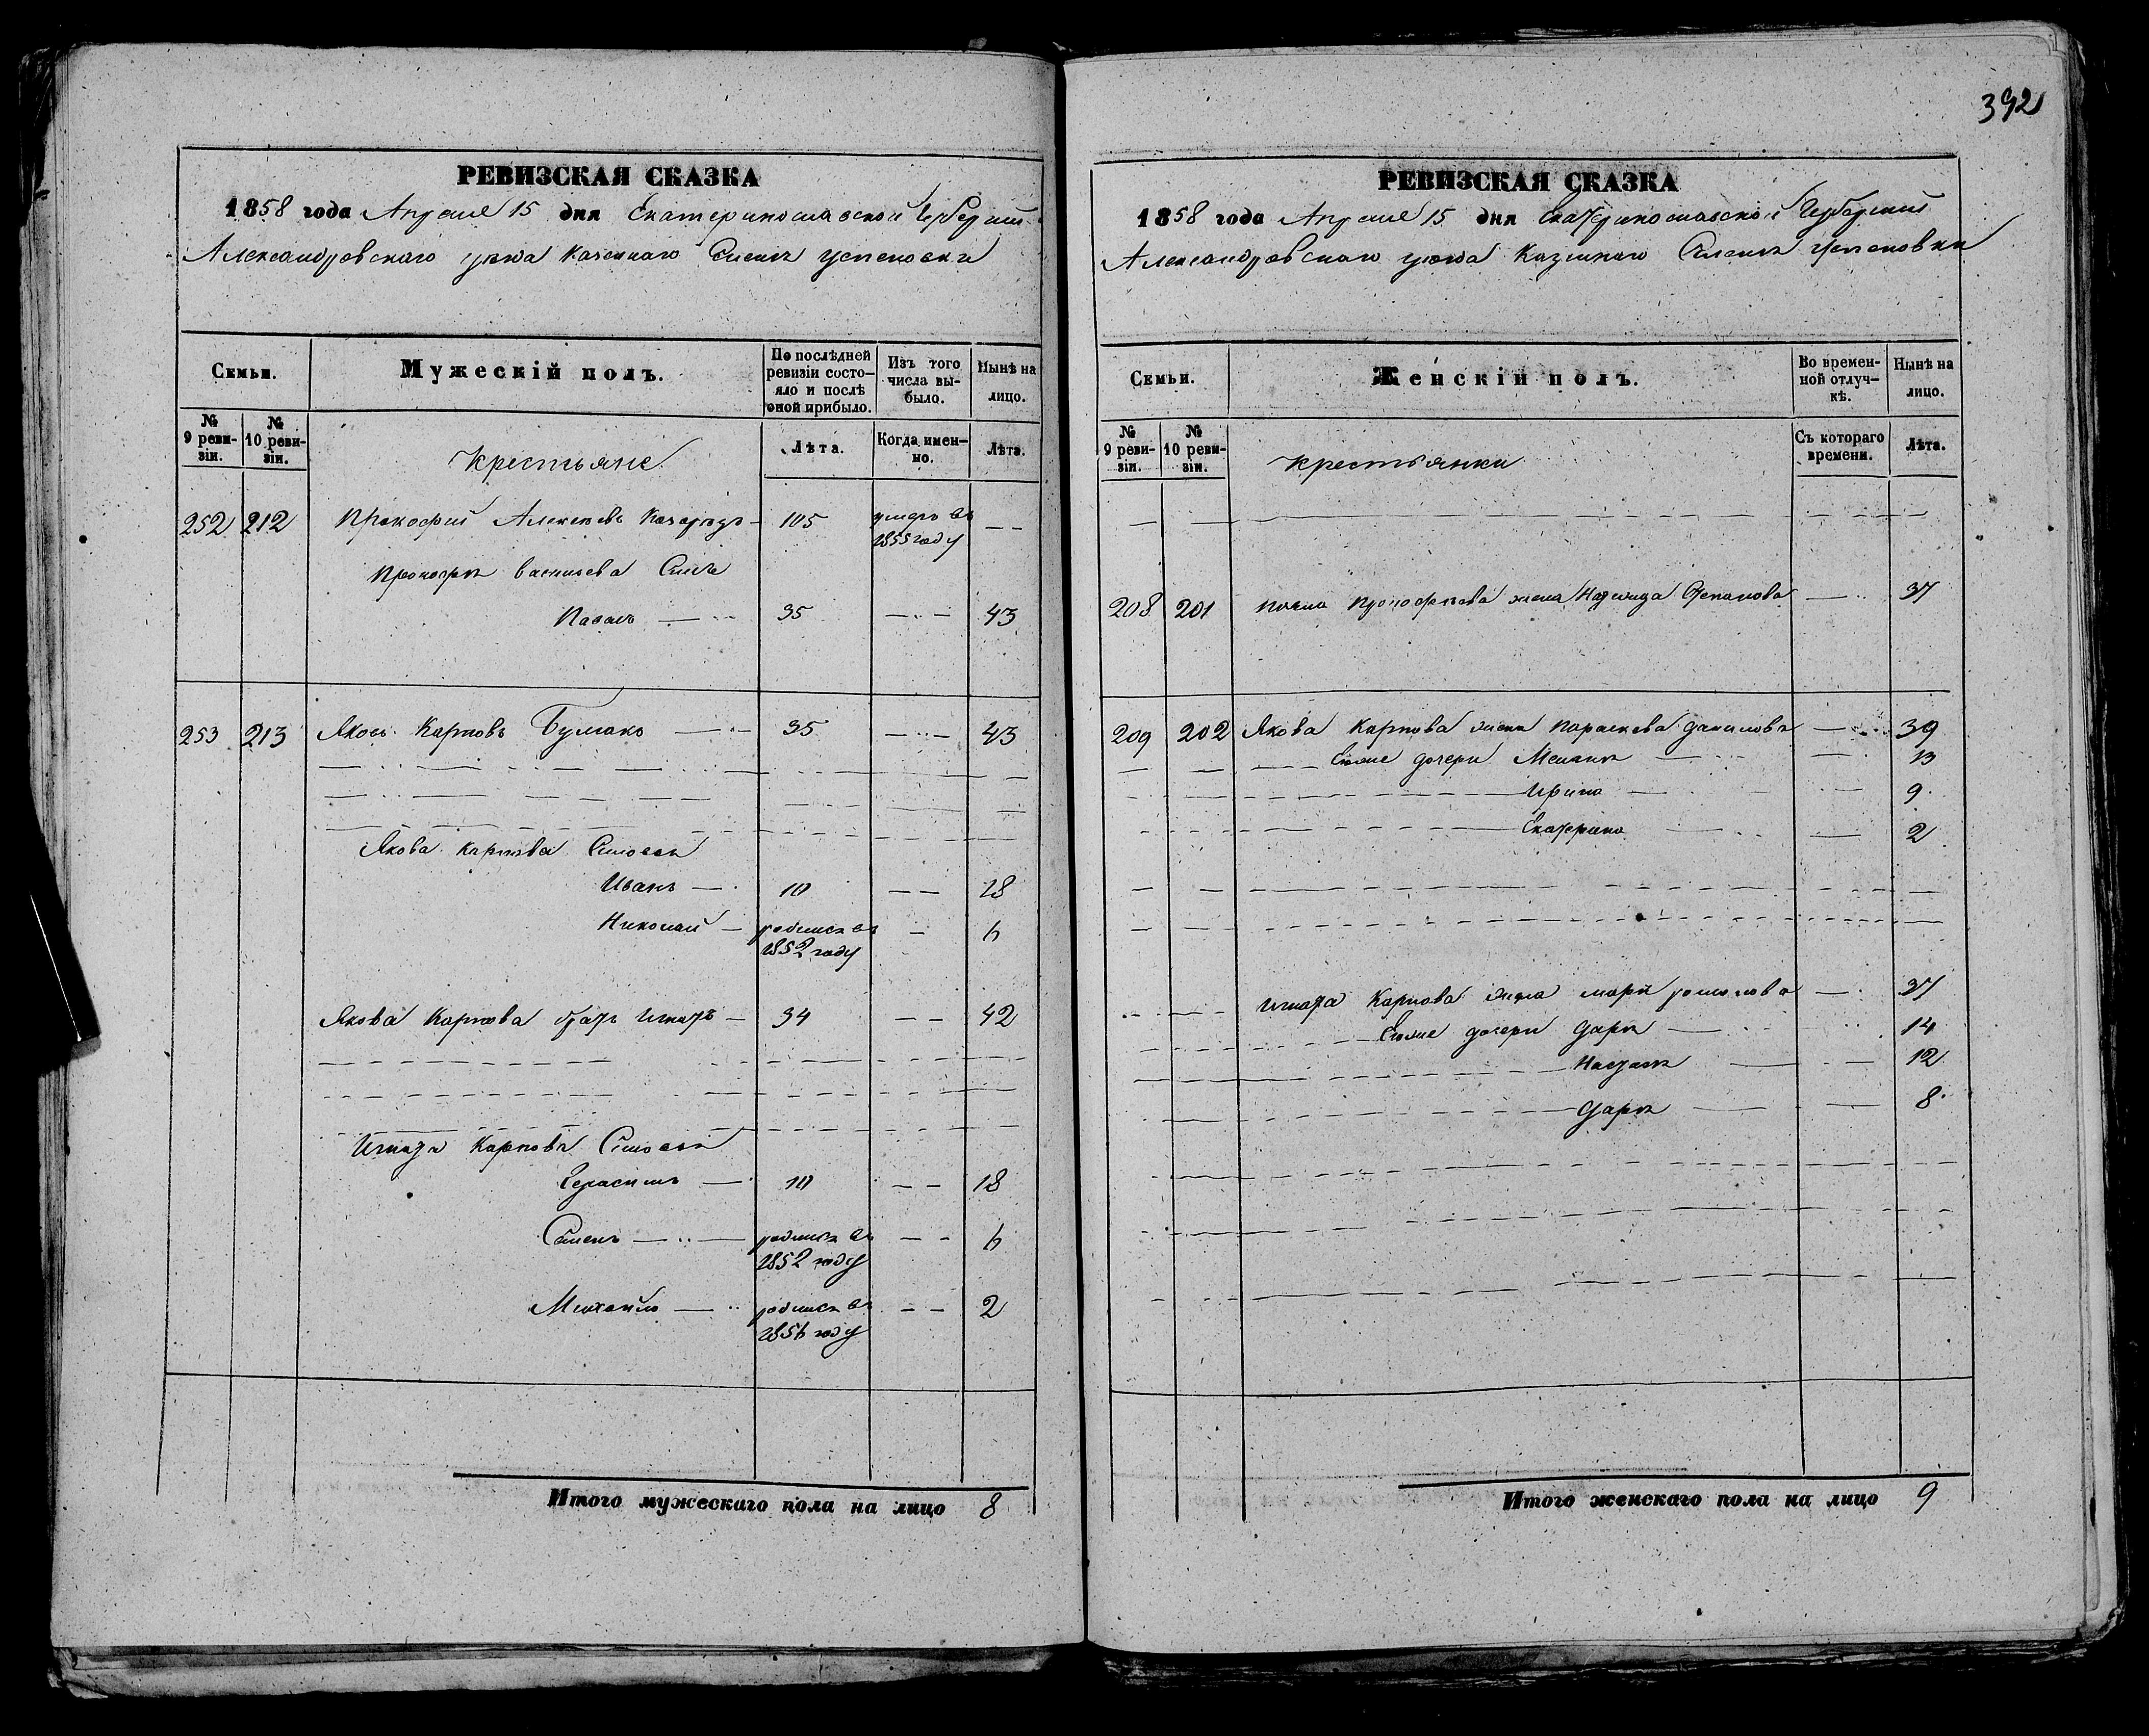 РЕВИЗСКАЯ СКАЗКА
1858 года Апреля 15 дня Екатеринославской Губернии
Александровского уезда Казенного Селения Успеновки
Семьи.
Мужескій полъ.
По послѣдней ревизіи состояло и послѣ оной прибыло.
Изъ того числа выбыло.
Нынѣ на лицо.
№ 9 ревизіи.
№ 10 ревизіи.
Крестьяне
Лѣта.
Когда именно.
Лѣта.
252 212 Прокофий Алексеевъ 105 умеръ въ 1855 году — —
Прокофия Васильева Сынъ
Павелъ — 35 — — 43
253 213 Яковъ Карповъ Бумако — 35 — — 43
Якова Карпова Сыновья
Иванъ — 10 — — 18
Николай — родился въ 1852 году — 6
Якова Карпова братъ Игнатъ — 34 — — 42
Игната Карпова Сыновья
Герасимъ — 10 — — 18
Семенъ — родился въ 1852 году — — 6
Михайло — родился въ 1856 году — — 2
Итого мужескаго пола на лицо 8
392
РЕВИЗСКАЯ СКАЗКА
1858 года Апреля 15 дня Екатеринославской Губернии
Александровского уезда Казенного Селения Успеновки
Семьи.
Женскій полъ.
Во временной отлучкѣ.
Нынѣ на лицо.
№ 9 ревизіи.
№ 10 ревизіи.
крестьянки
Съ котораго времени.
Лѣта.
208 201 Павла Прокофьева жена Надежда Степанова — 37
209 202 Якова Карпова жена Параскева Данилова — 39
Ихже дочери Мелания — 13
Ирина — 9
Екатерина — 2
Игната Карпова жена Мария Романова — 37
Ихже дочери Дария — 14
Настасия — 12
Дария — 8
Итого женскаго пола на лицо 9